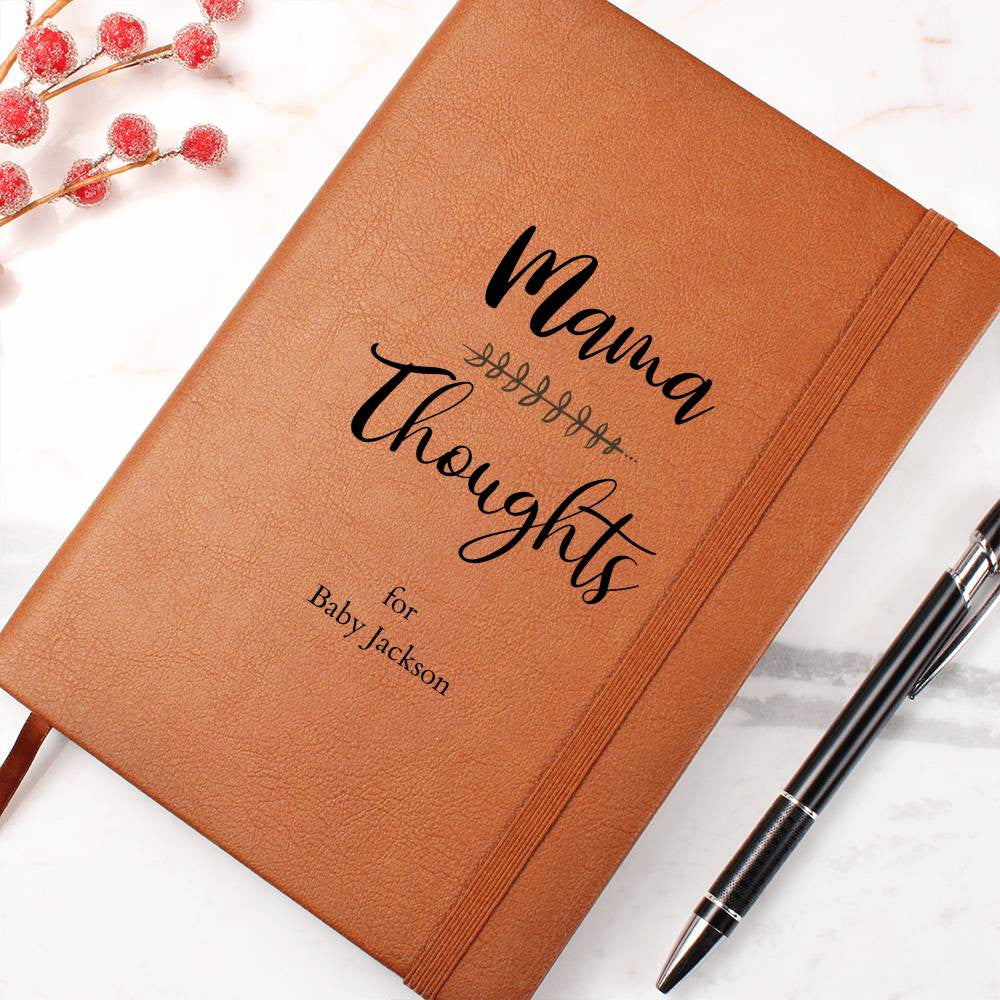 Mama
Thoughts
for
Baby Jackson